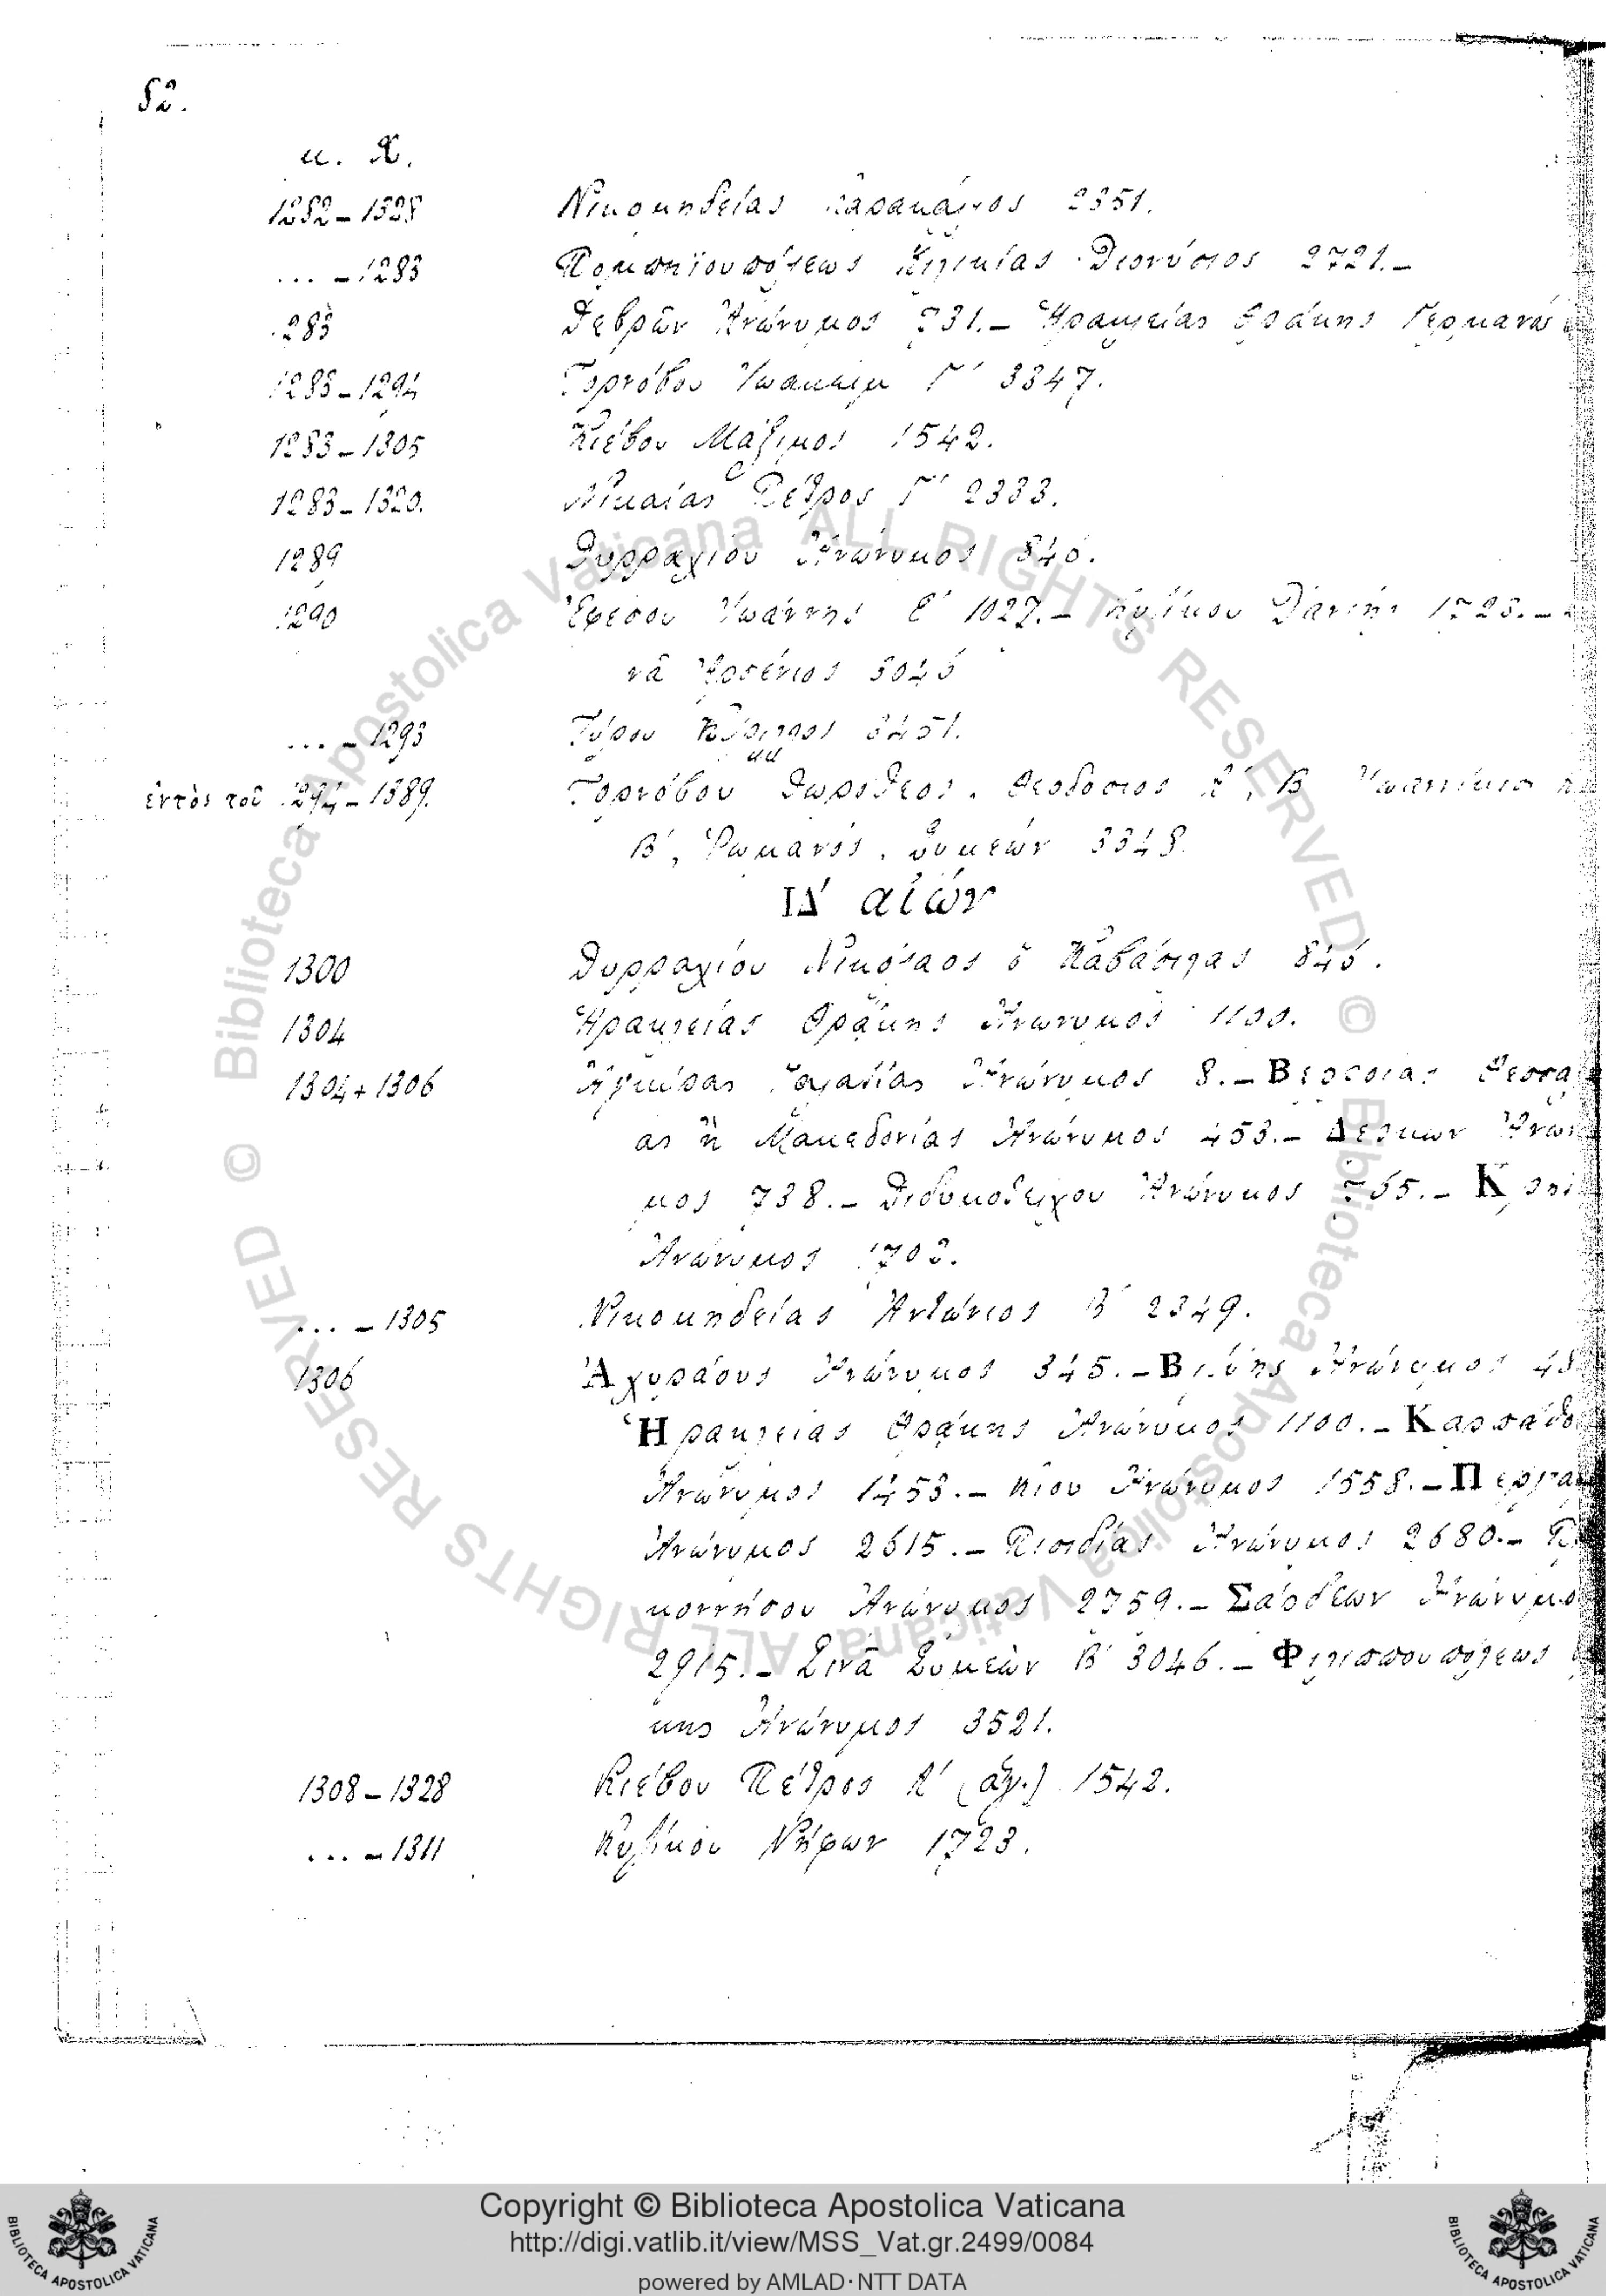 52.
μ. Χ.
1282–1328 Νικομηδείας Καρακάλος 2351.
... –1283 Πομπηϊουπόλεως Κιλικίας Διονύσιος 2721.–
1283 Δεβρῶν Ἀνώνυμος 731.– Ἡρακλείας Θράκης Γερμανὸς
1283–1294 Τορνόβου Ἰωακεὶμ Γ΄ 3347.
1283–1305 Κιέβου Μάξιμος 1542.
1283–1320. Νικαίας Πέτρος Γ΄ 2333.
1289 Δυρραχίου Ἀνώνυμος 846.
1290 Ἐφέσου Ἰωάννης Ε΄ 1027.– Κυζίκου Δανιὴλ 1723.–
νᾶ Ἀρσένιος 3046
... –1293 Τύρου Κύριλλος 3451.
ἐντὸς τοῦ 1294–1389. Τορνόβου Δωρόθεος, Θεοδόσιος Α΄, Β Ἰωαννίκιος
Β΄, Ῥωμανός, Συμεών 3348.
ΙΔ΄ αἰών
1300 Δυρραχίου Νικόλαος ὁ Καβάσιλας 846.
1304 Ἡρακλείας Θρᾴκης Ἀνώνυμος 1100.
1304+1306 Ἀγκύρας Γαλατίας Ἀνώνυμος 8.– Βερροίας Θεσσα
ας ἢ Μακεδονίας Ἀνώνυμος 453.– Δέρκων Ἀνώνυ
μος 738.– Διδυμοτείχου Ἀνώνυμος 765.–
Ἀνώνυμος 1703.
... –1305 Νικομηδείας Ἀντώνιος Β΄ 2349.
1306 Ἀχυράους Ἀνώνυμος 345.– Βιζύης Ἀνώνυμος 48
Ἡρακλείας Θρᾴκης Ἀνώνυμος 1100.– Καρπάθου
Ἀνώνυμος 1453.– Κίου Ἀνώνυμος 1558.– Περγά
Ἀνώνυμος 2615.– Πισιδίας Ἀνώνυμος 2680.–
κοννήσου Ἀνώνυμος 2759.– Σάρδεων Ἀνώνυμο
2915.– Σινᾶ Συμεὼν Β΄ 3046.– Φιλιππουπόλεως
κης Ἀνώνυμος 3521.
1308–1328 Κιέβου Πέτρος Α΄ (ἅγ.) 1542.
... –1311 Κυζίκου Νήφων 1723.
© Biblioteca Apostolica Vaticana ALL RIGHTS RESERVED © Biblioteca Apostolica Vaticana ALL RIGHTS RESERVED
Copyright © Biblioteca Apostolica Vaticana
http://digi.vatlib.it/view/MSS_Vat.gr.2499/0084
powered by AMLAD·NTT DATA
BIBLIOTECA APOSTOLICA VATICANA
BIBLIOTECA APOSTOLICA VATICANA